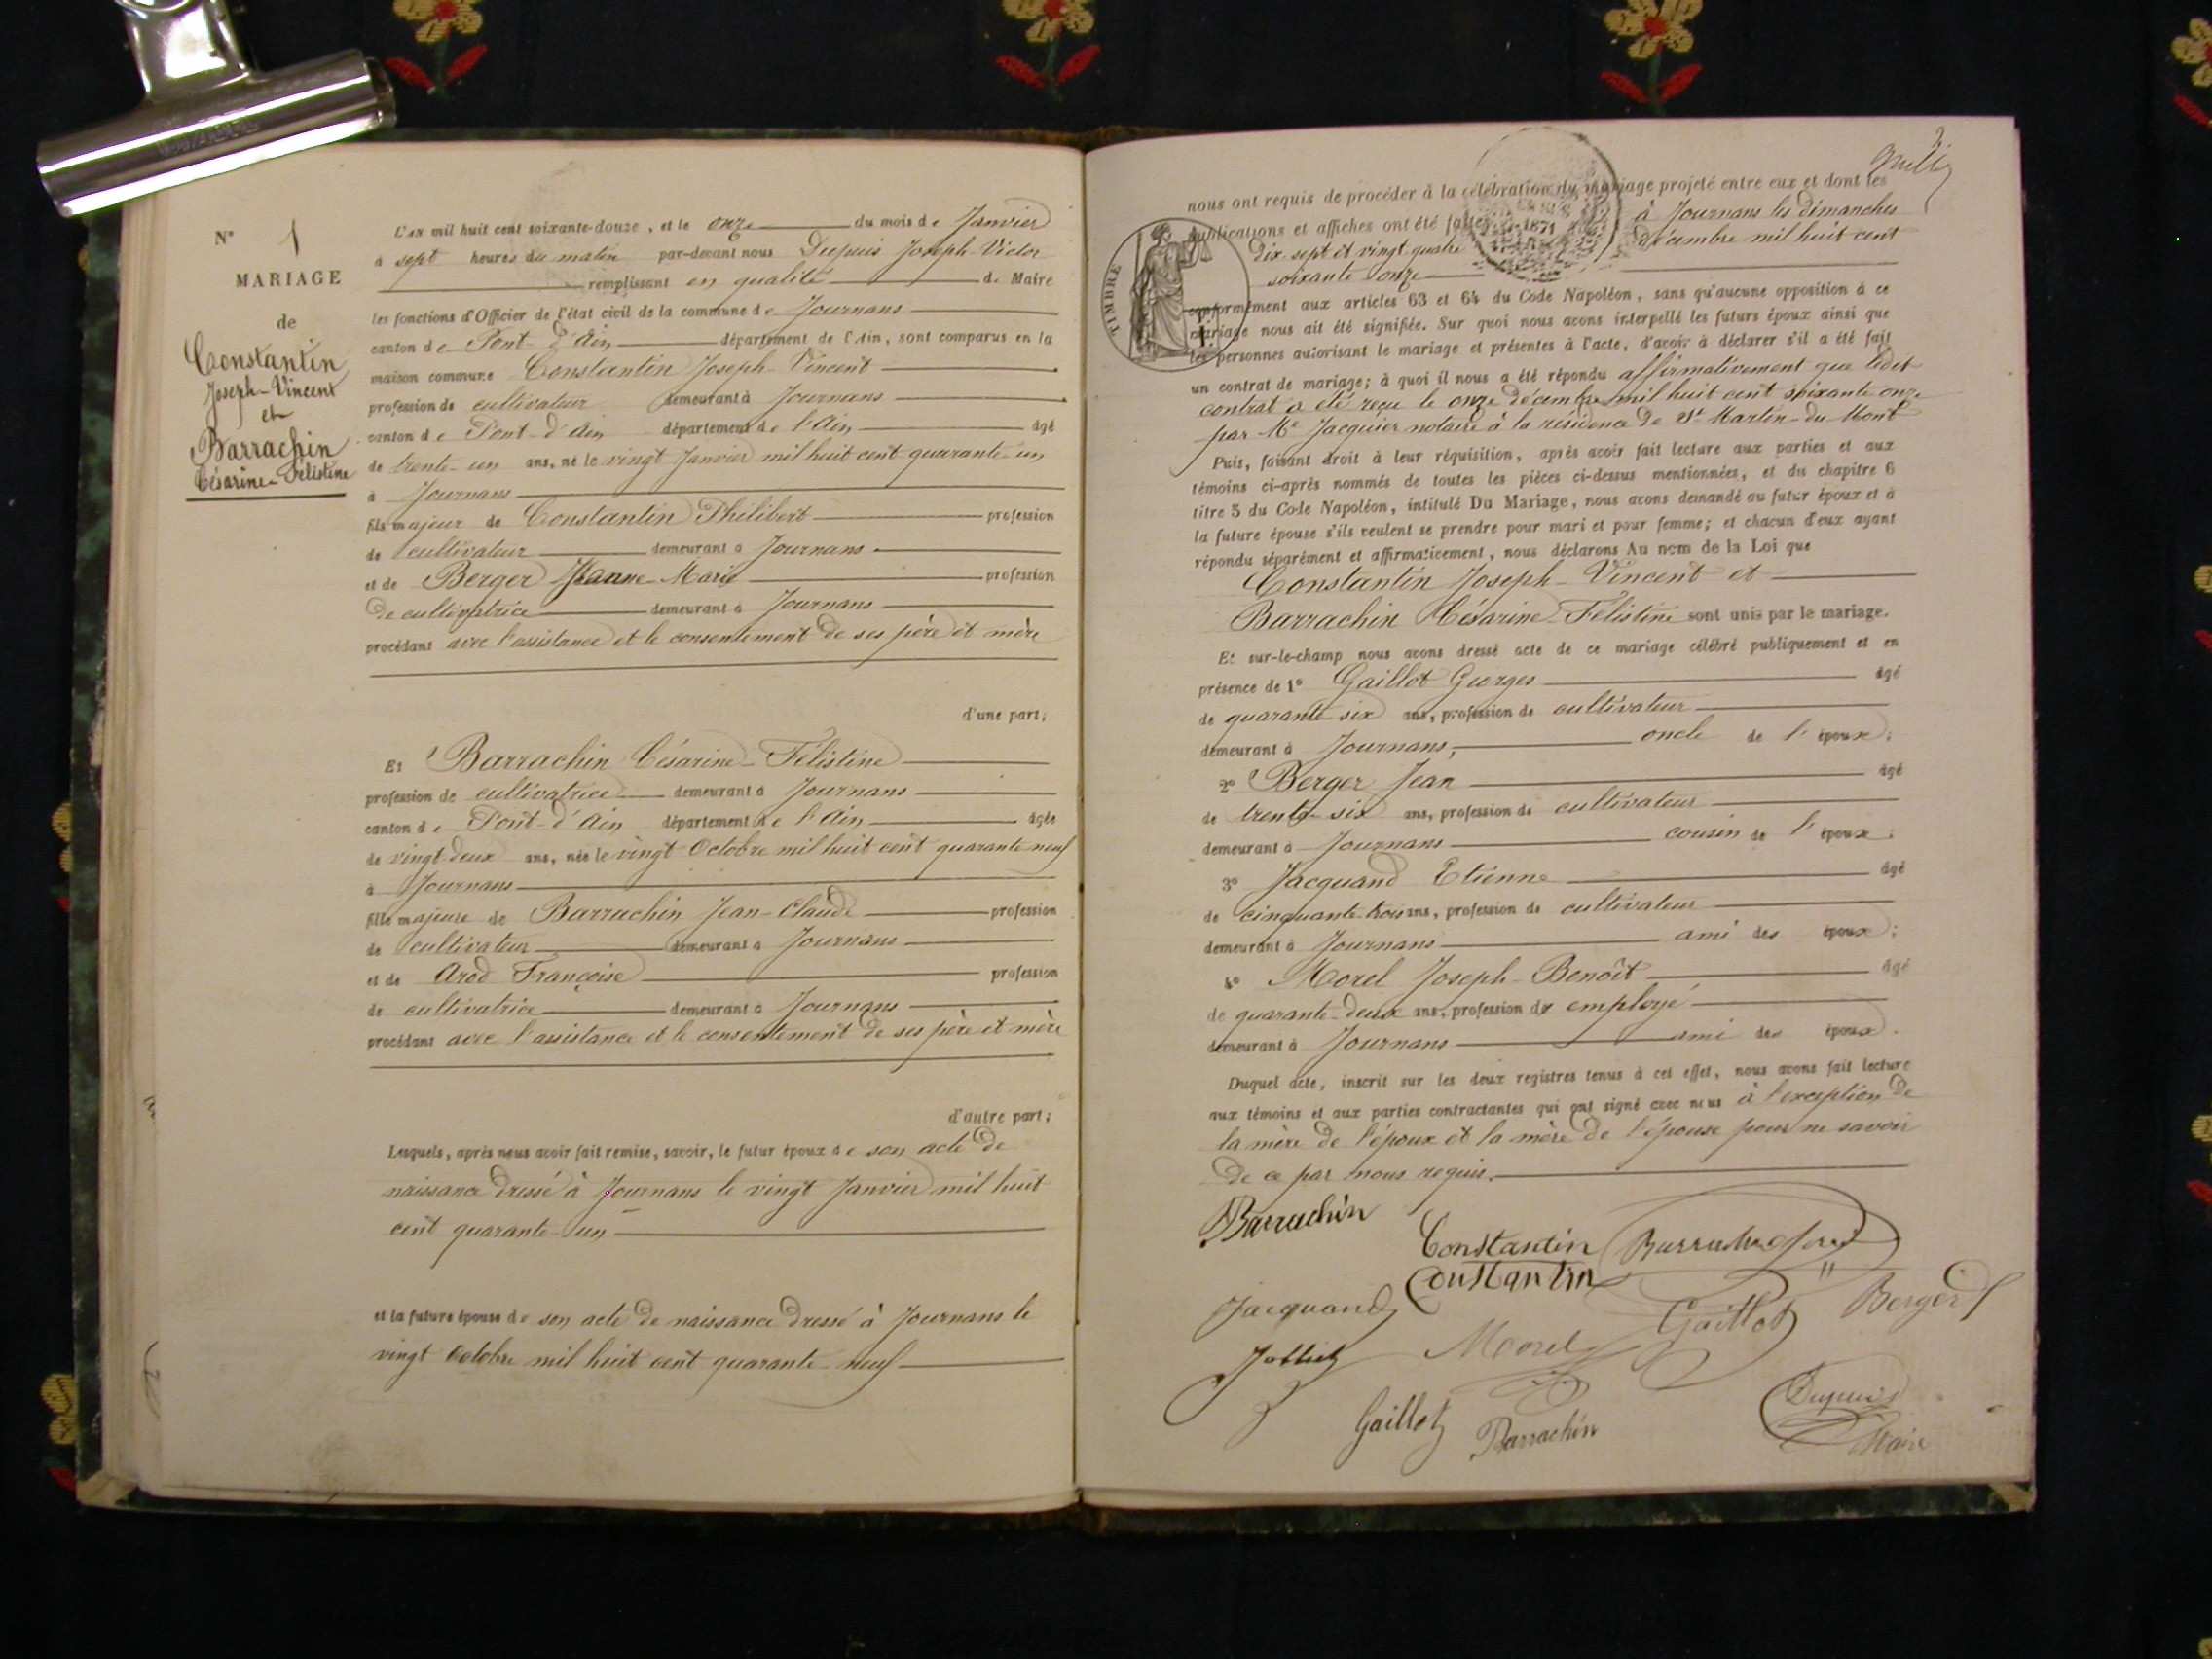 N° 1
MARIAGE
de
Constantin
Joseph-Vincent
et
Barrachin
Césarine-Félistine
L'an mil huit cent soixante-douze, et le onze du mois de Janvier
à sept heures du matin par-devant nous Dupuis Joseph-Victor
remplissant en qualité de Maire
les fonctions d'Officier de l'état civil de la commune de Journans
canton de Pont-d'Ain département de l'Ain, sont comparus en la
maison commune Constantin Joseph-Vincent
profession de cultivateur demeurant à Journans
canton de Pont-d'Ain département de l'Ain âgé
de trente-un ans, né le vingt Janvier mil huit cent quarante-un
à Journans
fils majeur de Constantin Philibert profession
de cultivateur demeurant à Journans
et de Berger Jeanne-Marie profession
de cultivatrice demeurant à Journans
procédant avec l'assistance et le consentement de ses père et mère
d'une part;
Et Barrachin Césarine-Félistine
profession de cultivatrice demeurant à Journans
canton de Pont-d'Ain département de l'Ain âgée
de vingt-deux ans, née le vingt Octobre mil huit cent quarante neuf
à Journans
fille majeure de Barrachin Jean-Claude profession
de cultivateur demeurant à Journans
et de Arod Françoise profession
de cultivatrice demeurant à Journans
procédant avec l'assistance et le consentement de ses père et mère
d'autre part;
Lesquels, après nous avoir fait remise, savoir, le futur époux de son acte de
naissance dressé à Journans le vingt Janvier mil huit
cent quarante-un
et la future épouse de son acte de naissance dressé à Journans le
vingt Octobre mil huit cent quarante neuf
2
nous ont requis de procéder à la célébration du mariage projeté entre eux et dont les
publications et affiches ont été faites à Journans les dimanches
dix-sept et vingt quatre décembre mil huit cent
soixante onze
TIMBRE
1871
conformément aux articles 63 et 64 du Code Napoléon, sans qu'aucune opposition à ce
mariage nous ait été signifiée. Sur quoi nous avons interpellé les futurs époux ainsi que
les personnes autorisant le mariage et présentes à l'acte, d'avoir à déclarer s'il a été fait
un contrat de mariage; à quoi il nous a été répondu affirmativement que ledit
contrat a été reçu le onze décembre mil huit cent soixante onze
par Me Jacquier notaire à la résidence de St Martin-du-Mont
Puis, faisant droit à leur réquisition, après avoir fait lecture aux parties et aux
témoins ci-après nommés de toutes les pièces ci-dessus mentionnées, et du chapitre 6
titre 5 du Code Napoléon, intitulé Du Mariage, nous avons demandé au futur époux et à
la future épouse s'ils veulent se prendre pour mari et pour femme; et chacun d'eux ayant
répondu séparément et affirmativement, nous déclarons Au nom de la Loi que
Constantin Joseph-Vincent et
Barrachin Césarine-Félistine sont unis par le mariage.
Et sur-le-champ nous avons dressé acte de ce mariage célébré publiquement et en
présence de 1° Gaillot Georges âgé
de quarante-six ans, profession de cultivateur
demeurant à Journans, oncle de l'époux;
2° Berger Jean âgé
de trente-six ans, profession de cultivateur
demeurant à Journans cousin de l'époux;
3° Jacquand Etienne âgé
de cinquante-trois ans, profession de cultivateur
demeurant à Journans ami des époux;
4° Morel Joseph-Benoît âgé
de quarante-deux ans, profession de employé
demeurant à Journans ami des époux.
Duquel acte, inscrit sur les deux registres tenus à cet effet, nous avons fait lecture
aux témoins et aux parties contractantes qui ont signé avec nous à l'exception de
la mère de l'époux et la mère de l'épouse pour ne savoir
de ce par nous requis.
Barrachin
Constantin
Constantin
Jacquand
Gaillot
Berger
Morel
Gaillot
Barrachin
Dupuis
Maire